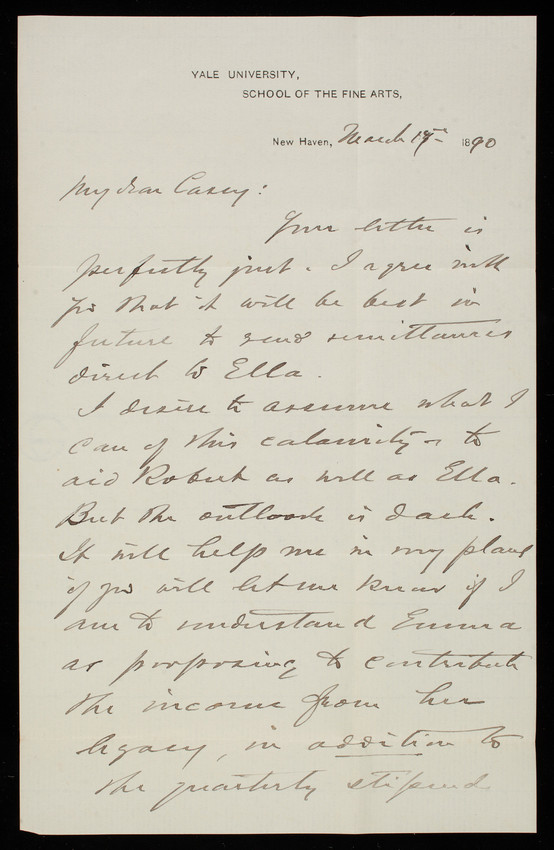 YALE UNIVERSITY,
SCHOOL OF THE FINE ARTS,
New Haven, March 19th 1890
My dear Casey:
Your letter is
perfectly just. I agree with
you that it will be best in
future to send remittances
direct to Ella.
I desire to assume what I
can of this calamity & to
aid Robert as well as Ella.
But the outlook is dark.
It will help me in my plans
if you will let me know if I
am to understand Emma
as proposing to contribute
the income from her
legacy, in addition to
the quarterly stipend